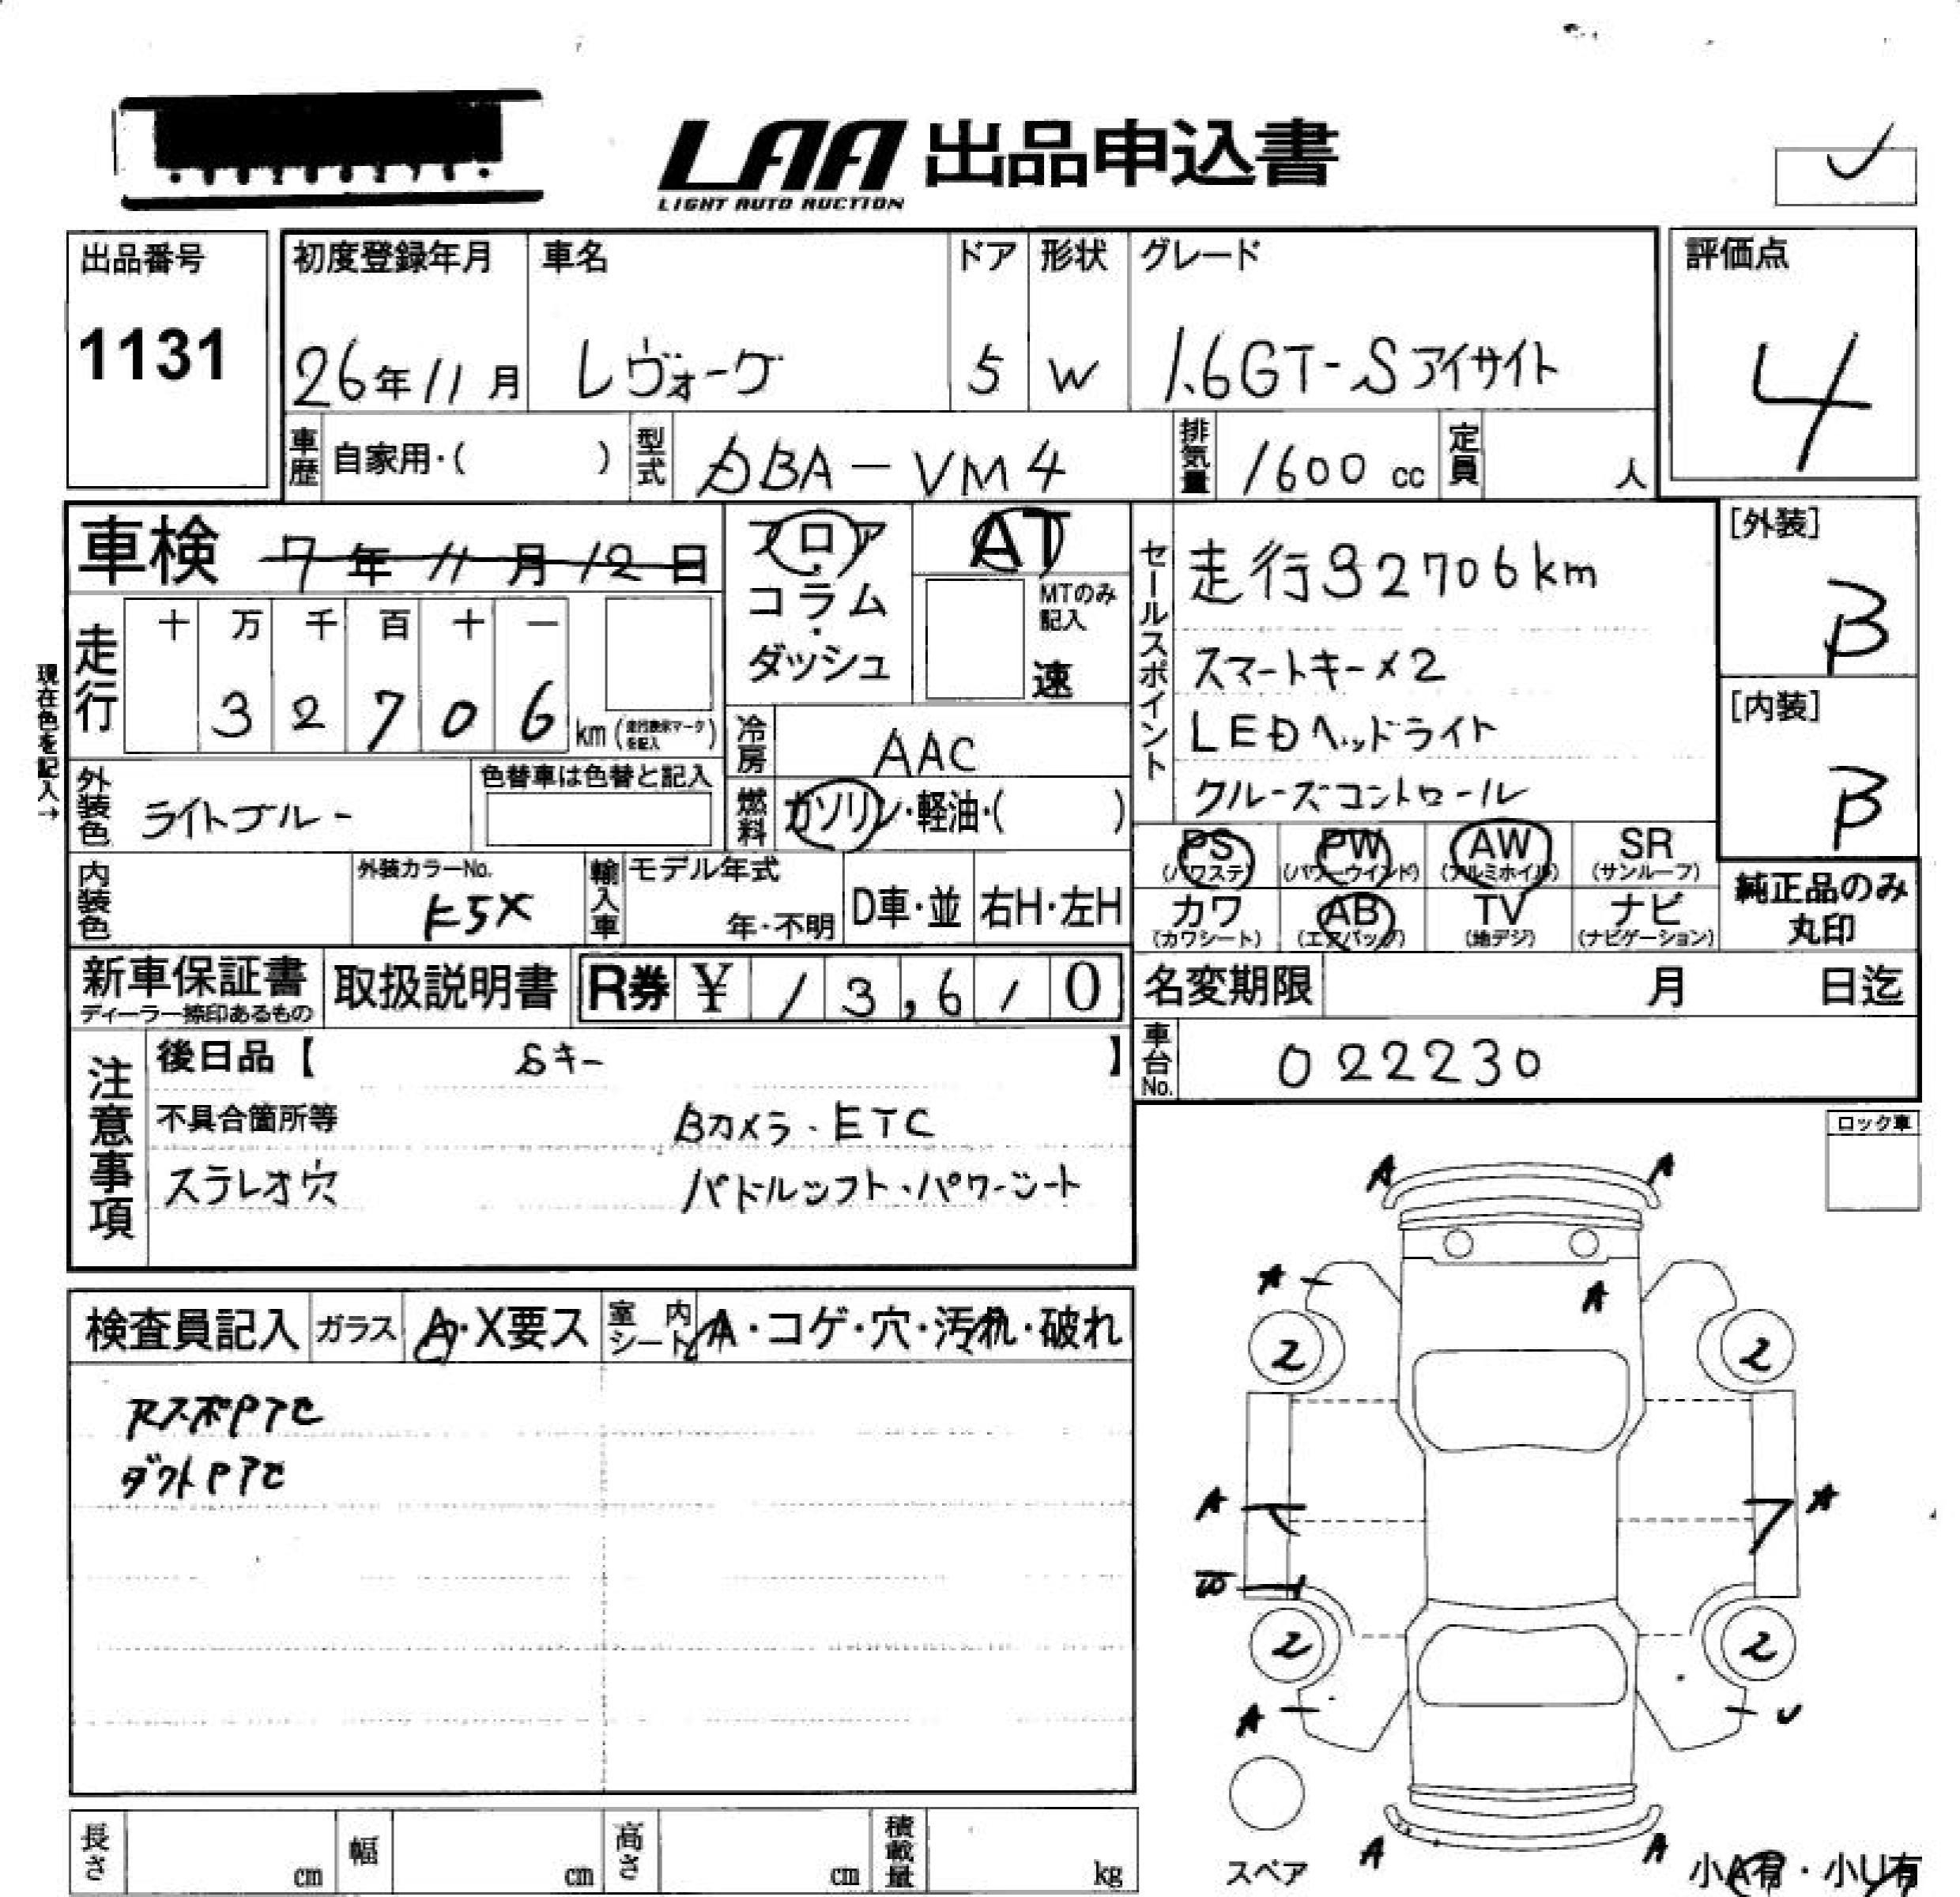 LAA 出品申込書
LIGHT AUTO AUCTION
出品番号
1131
初度登録年月
26年11月
車名
レヴォーグ
ドア
5
形状
W
グレード
1.6GT-Sアイサイト
評価点
4
車歴 自家用・( )
型式 DBA-VM4
排気量 1600 cc
定員 人
車検 7年11月12日
フロア・コラム・ダッシュ
AT
MTのみ記入
速
走行
十 万 千 百 十 一
3 2 7 0 6 km
現在色を記入→
冷房 AAC
燃料 ガソリン・軽油・( )
セールスポイント
走行32706km
スマートキー×2
LEDヘッドライト
クルーズコントロール
[外装]
B
[内装]
B
外装色 ライトブルー
色替車は色替と記入
内装色
外装カラーNo.
K5X
輸入車
モデル年式
年・不明
D車・並
右H・左H
PS (パワステ)
PW (パワーウインド)
AW (アルミホイル)
SR (サンルーフ)
カワ (カワシート)
AB (エアバッグ)
TV (地デジ)
ナビ (ナビゲーション)
純正品のみ丸印
新車保証書
ディーラー捺印あるもの
取扱説明書
R券 ¥ 13,610
名変期限 月 日迄
車台No. 022230
注意事項
後日品【 Sキー 】
不具合箇所等
Bカメラ・ETC
ステレオ穴
パドルシフト・パワーシート
ロック車
検査員記入
ガラス A・X要ス
室内シート A・コゲ・穴・汚れ・破れ
ダクトPTC
A A
A A
2 2
A A
W
2 2
A U
A A
スペア
小A有・小U有
長さ cm
幅 cm
高さ cm
積載量 kg